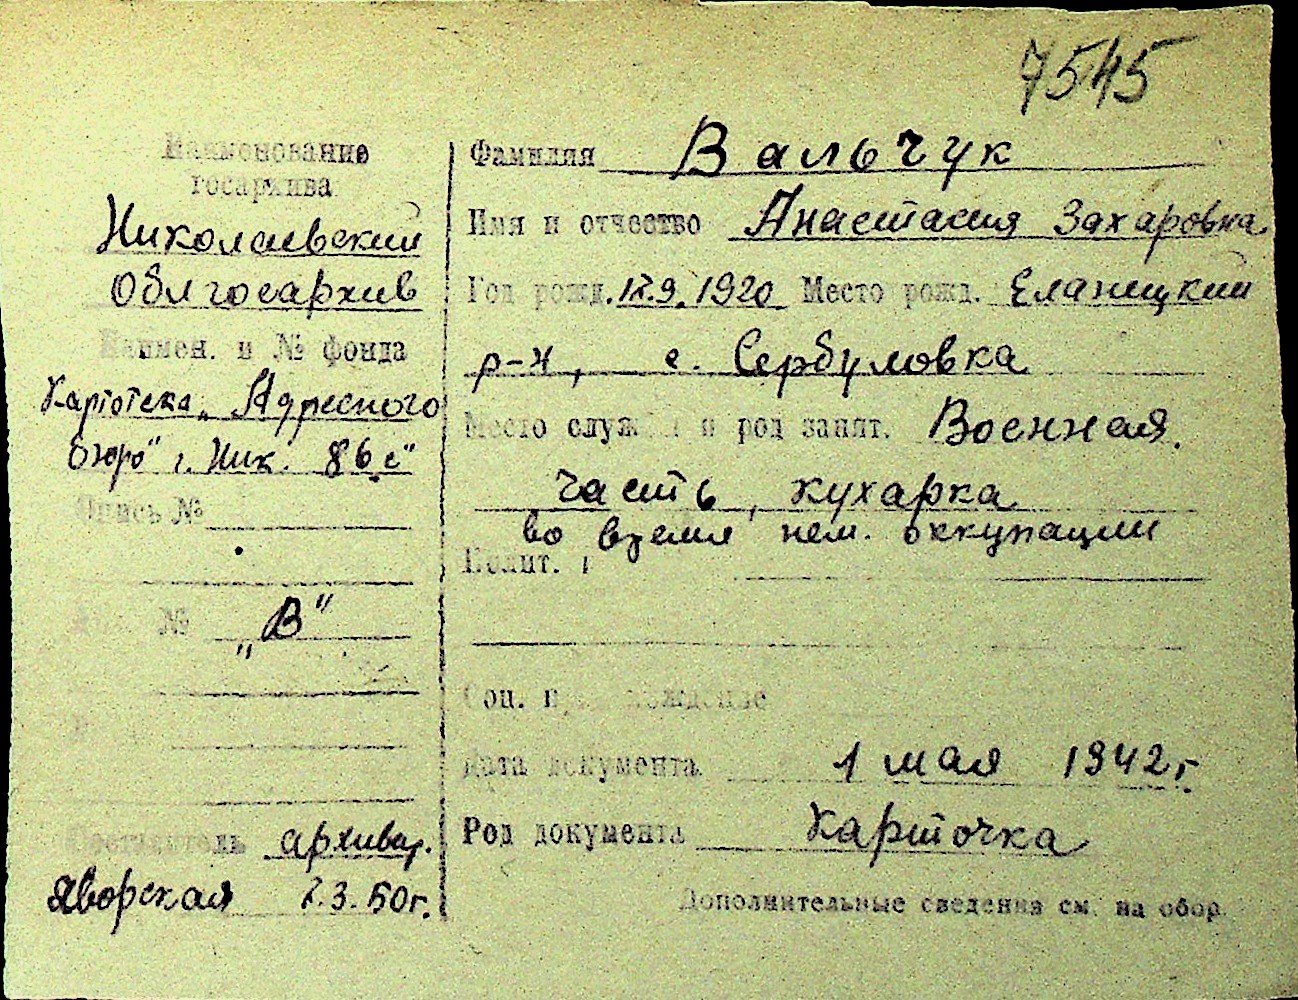 7545
Наименование
госархива
Николаевский
Облгосархив
Наимен. и № фонда
Картотека „Адресного
бюро" г. Ник. 86с"
Опись №
„В"
Составитель архивар.
Яворская 2.3.50г.
Фамилия Вальчук
Имя и отчество Анастасия Захаровна
Год рожд. 12.9.1920 Место рожд. Еланецкий
р-н, с. Сербуловка
Место служ и род занят. Военная
часть, кухарка
во время нем. оккупации
Полит.
Соц. происхождение
Дата документа 1 мая 1942г.
Род документа Карточка
Дополнительные сведения см. на обор.